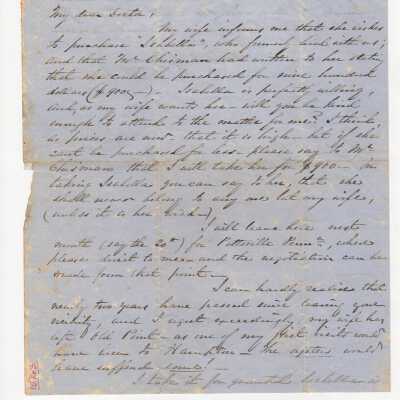 My dear Doctor,
My wife informs me that she wishes
to purchase "Isabella", who formerly lived with us;
and that Mr Chisman had written to her stating
that she could be purchased for nine hundred
dollars ($900,—) - Isabella is perfectly willing,
and, as my wife wants her - will you be kind
enough to attend to the matter for me? I think,
as prices are now that it is high - but if she
can't be purchased for less please say to Mr
Chisman that I will take her for $900 — in
taking Isabella you can say to her, that she
shall never belong to any one but my wife,
(unless it is her wish —)
I will leave here next
month (say the 20th) for Pottsville Penna, where
please direct to me — and the negotiation can be
made from that point —
I can hardly realize that
nearly two years have passed since leaving your
vicinity, and I regret exceedingly my wife has
left Old Point — as one of my first visits would
have been to Hampton — the oysters would
have suffered some! —
I take it for granted Isabella is